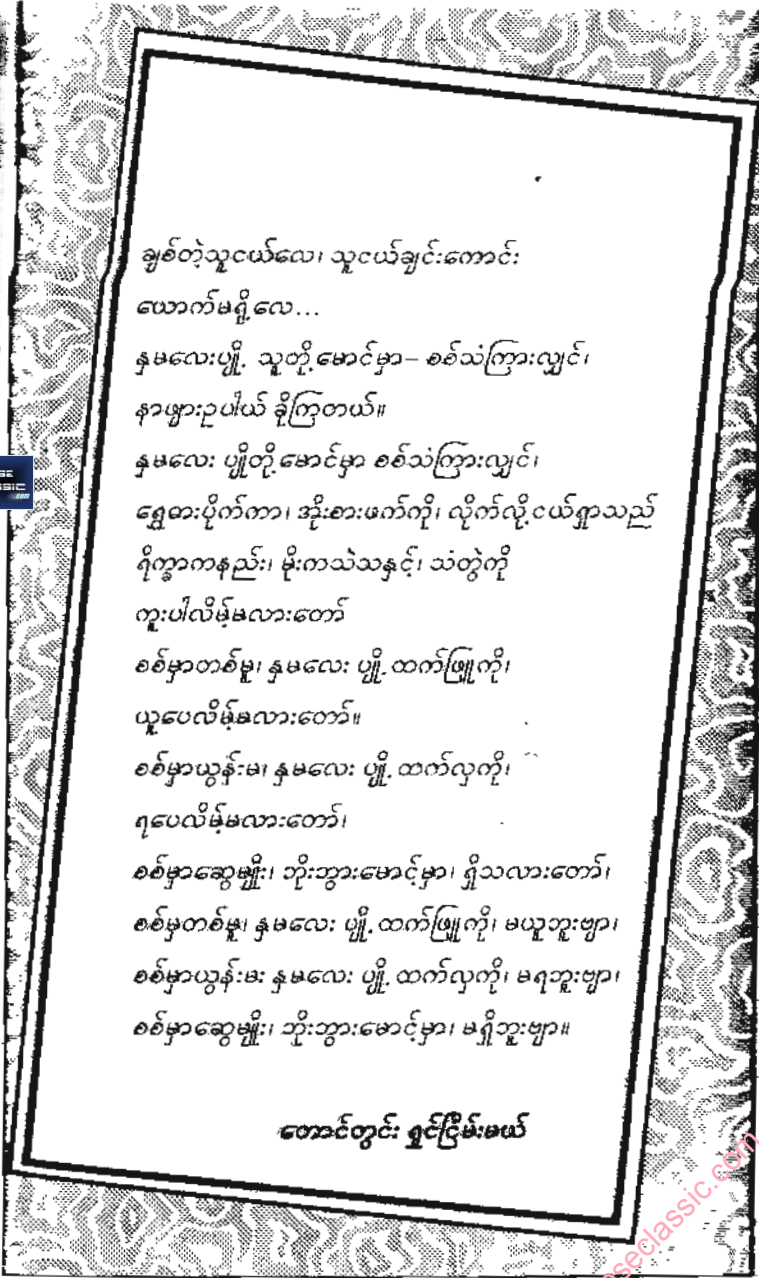 ချစ်တဲ့သူငယ်လေ၊ သူငယ်ချင်းကောင်း
ယောက်မရှို့လေ...
နှမလေးပျို့ သူတို့မောင်မှာ– စစ်သံကြားလျှင်၊
နာဖျားဥပါယ် ခိုကြတယ်။
နှမလေး ပျိုတို့မောင်မှာ စစ်သံကြားလျှင်၊
ရွှေဓားပိုက်ကာ၊ အိုးစားဖက်ကို၊ လိုက်လို့ငယ်ရှာသည်
ရိက္ခာကနည်း၊ မိုးကသဲသနှင့်၊ သံတွဲကို
ကူးပါလိမ့်မလားတော်
စစ်မှာတစ်မူ၊ နှမလေး ပျို့ထက်ဖြူကို၊
ယူပေလိမ့်မလားတော်။
စစ်မှာယွန်းမ၊ နှမလေး ပျို့ထက်လှကို၊
ရပေလိမ့်မလားတော်၊
စစ်မှာဆွေမျိုး၊ ဘိုးဘွားမောင့်မှာ၊ ရှိသလားတော်၊
စစ်မှတစ်မူ၊ နှမလေး ပျို့ထက်ဖြူကို၊ မယူဘူးဗျာ၊
စစ်မှာယွန်းမး နှမလေး ပျို့ထက်လှကို၊ မရဘူးဗျာ၊
စစ်မှာဆွေမျိုး၊ ဘိုးဘွားမောင့်မှာ၊ မရှိဘူးဗျာ။
တောင်တွင်း ရှင်ငြိမ်းမယ်
seclassic.com